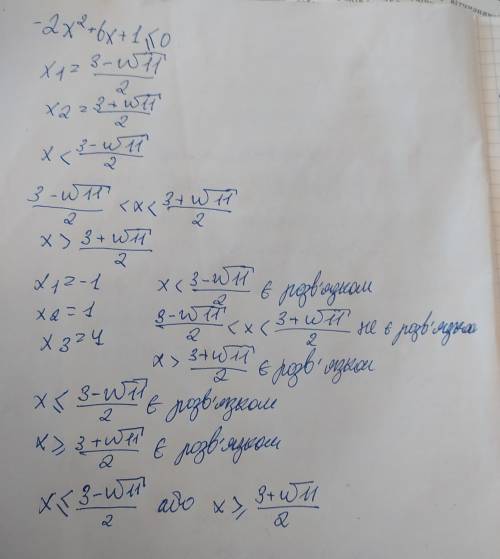 -2x²+6x+1≤0
x1=(3-√11)/2
x2=(3+√11)/2
x<(3-√11)/2
(3-√11)/2<x<(3+√11)/2
x>(3+√11)/2
x1=-1
x2=1
x3=4
x<(3-√11)/2 є розв'язком
(3-√11)/2<x<(3+√11)/2 не є розв'язком
x>(3+√11)/2 є розв'язком
x≤(3-√11)/2 є розв'язком
x≥(3+√11)/2 є розв'язком
x≤(3-√11)/2 або x≥(3+√11)/2